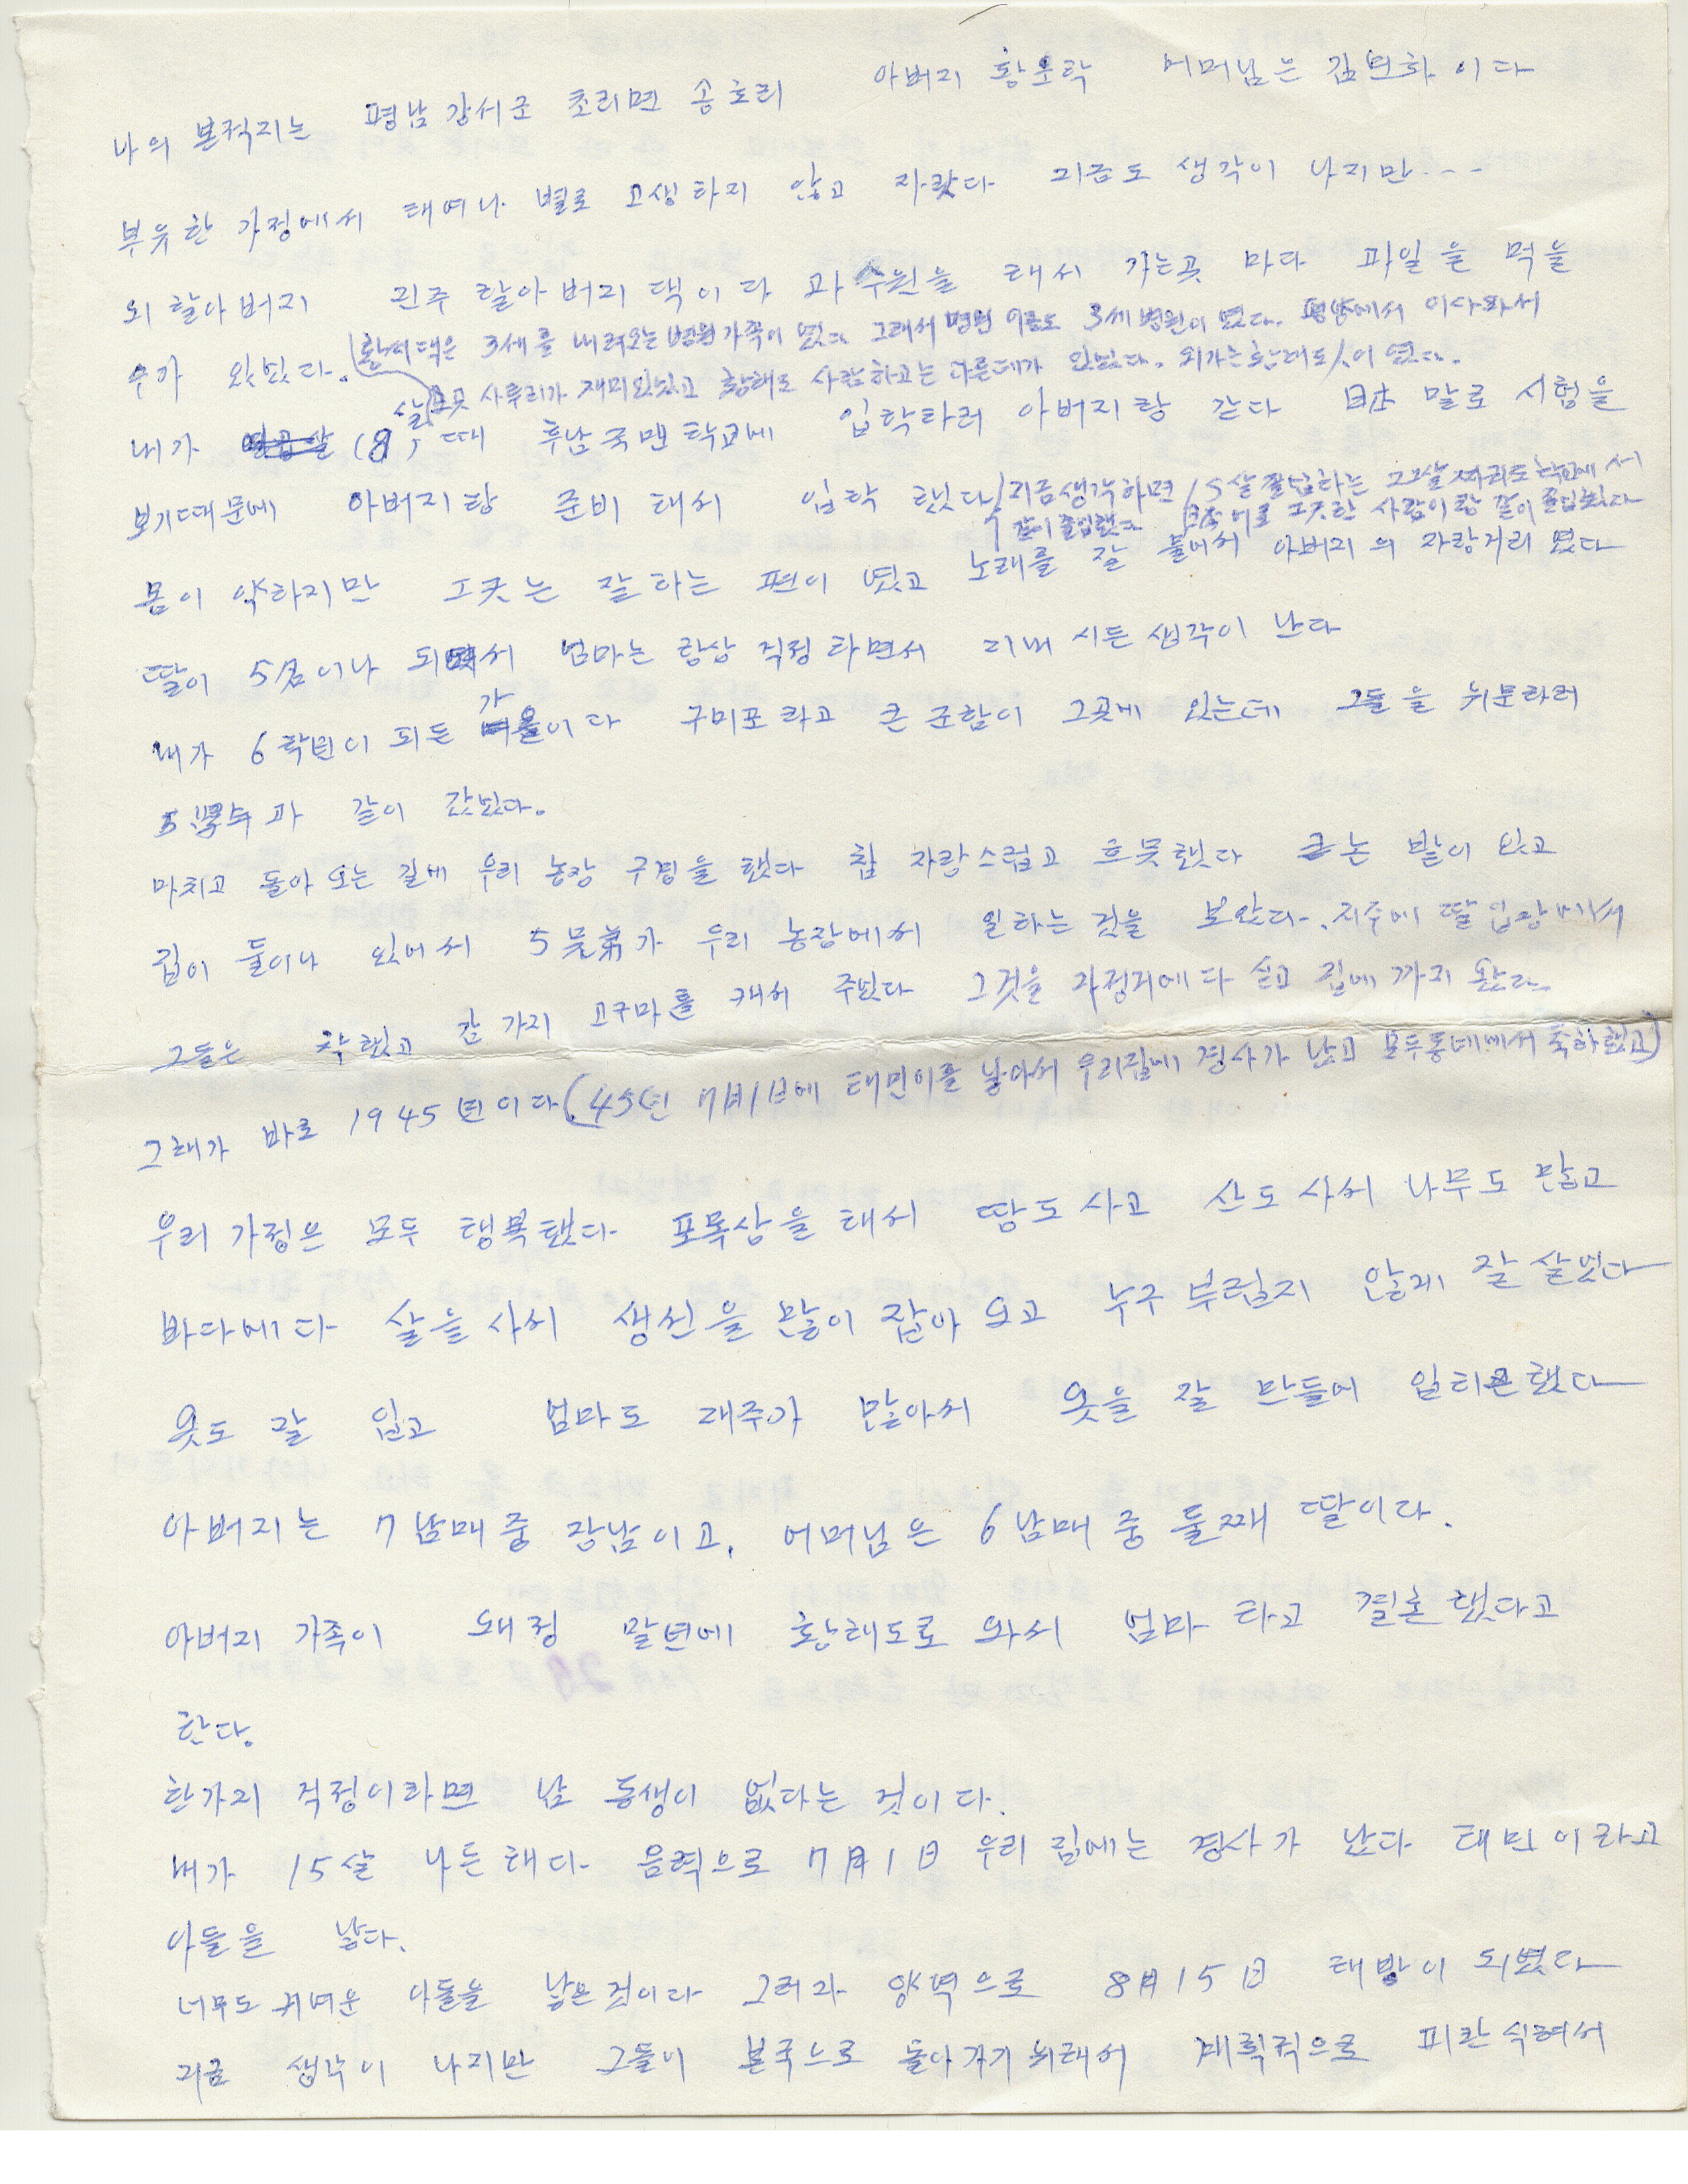 나의 본적지는 평남 강서군 초리면 송호리 아버지 황운락 어머님는 김 이다
부유한 가정에서 태여나 별로 고생하지 않고 자랐다 지금도 생각이 나지만---
외 할아버지 진주 할아버지 댁이다 과수원을 해서 가는곳 마다 과일을 먹을
수가 있었다. (황씨댁은 3세를 내려오는 병원가족이 였다 그래서 병원 이름도 3세병원이 였다. 평양에서 이사와서
살 모곳 사투리가 재미있었고 황해도 사람하고는 다른데가 있었다. 외가는 황해도人이 였다.
내가 (8살) 때 후남국맨 학교에 입학하러 아버지랑 갇다 日本 말로 시험을
보기때문에 아버지랑 준비 해서 입학 했다 (지금생각하면 15살 졸업하는 그살 짜리도 학교에서
같이 졸업했다 日本어로 그곳한 사람이랑 같이 졸업했다
몸이 약하지만 工夫는 잘 하는 편이 였고 노래를 잘 불에서 아버지의 자랑거리 였다
딸이 5섬이나 되서 엄마는 항상 걱정 하면서 지내 시든 생각이 난다
내가 6학년이 되든 가을이다 구미포라고 큰 군함이 그곳에 있는데 그들을 위문하러
5 과 같이 갔었다.
마치고 돌아 오는 길에 우리 농장 구경을 했다 참 자랑스럽고 흐믓했다 큰 논 밭이 있고
집이 둘이나 있어서 5兄弟가 우리 농장에서 일하는 것을 보았다. 지주에 딸 입장에서
그들은 착했고 감 가지 고구마를 캐서 주었다 그것을 자정거에다 싣고 집에 까지 왔다.
그해가 바로 1945년이다 (45년 7月1日에 태민이를 낳아서 우리집에 경사가 났고 모두 동네에서 축하했고)
우리 가정은 모두 행복했다 포목상을 해서 땅도 사고 산도 사서 나무도 많고
바다에다 살을 사서 생선을 많이 잡아 오고 누구 부럽지 않게 잘 살었다
옷도 잘 입고 엄마도 재주가 많아서 옷을 잘 만들어 입히곤했다
아버지는 7남매중 장남이고, 어머님은 6남매 중 둘째 딸이다.
아버지 가족이 왜정 말년에 황해도로 와서 엄마 하고 결혼했다고
한다.
한가지 걱정이라면 남 동생이 없다는 것이다.
내가 15살 나든해다 음력으로 7月1日 우리 집에는 경사가 났다 태민 이라고
아들을 낳다.
너무도 귀여운 아들을 낳은것이다 그러자 양력으로 8月15日 해방이 되였다
지금 생각이 나지만 그들이 본국으로 돌아가기 위해서 계획적으로 피란 식혀서